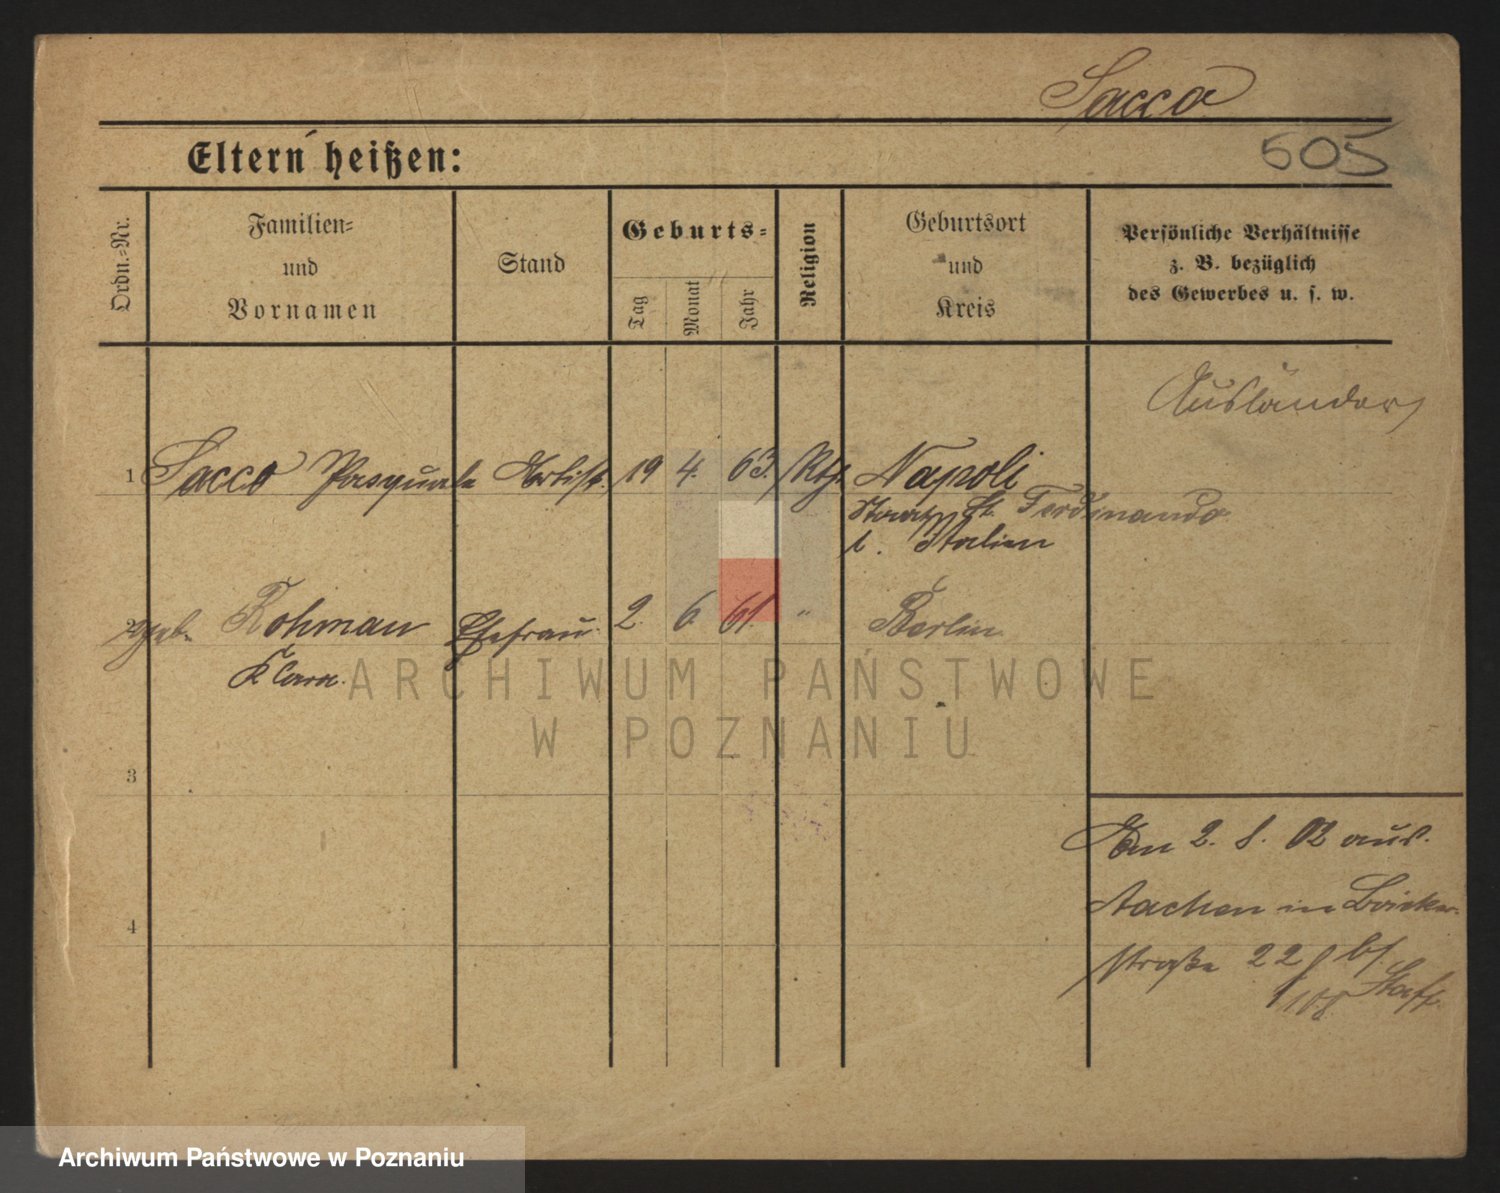 Sacco
Eltern heißen:
505
Ordn.-Nr.
Familien-
und
Vornamen
Stand
Geburts-
Tag
Monat
Jahr
Religion
Geburtsort
und
Kreis
Persönliche Verhältnisse
z. B. bezüglich
des Gewerbes u. s. w.
Ausländer
1 Sacco Pasquale Artist. 19 4. 63. Napoli
St. Ferdinando
i. Italien
2 geb. Rohman Ehefrau. 2. 6. 61. " Berlin.
Klara.
ARCHIWUM PAŃSTWOWE
W POZNANIU
3
4
Am 2. 8. 02 aus
Aachen in
straße 22 bf.
108
Archiwum Państwowe w Poznaniu